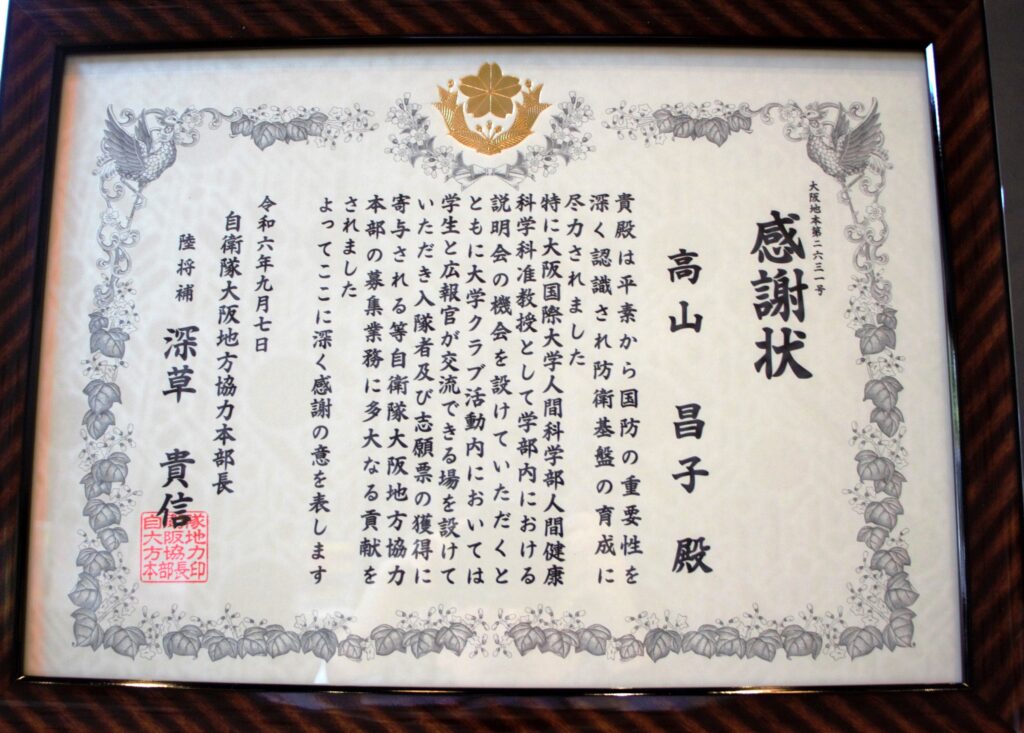 大阪地本第二六三一号
感謝状
高山昌子殿
貴殿は平素から国防の重要性を
深く認識され防衛基盤の育成に
尽力されました
特に大阪国際大学人間科学部人間健康
科学科准教授として学部内における
説明会の機会を設けていただくと
ともに大学クラブ活動内においては
学生と広報官が交流できる場を設けて
いただき入隊者及び志願票の獲得に
寄与される等自衛隊大阪地方協力
本部の募集業務に多大なる貢献を
されました
よってここに深く感謝の意を表します
令和六年九月七日
自衛隊大阪地方協力本部長
陸将補 深草貴信
自衛隊
大阪地
方協力
本部長印